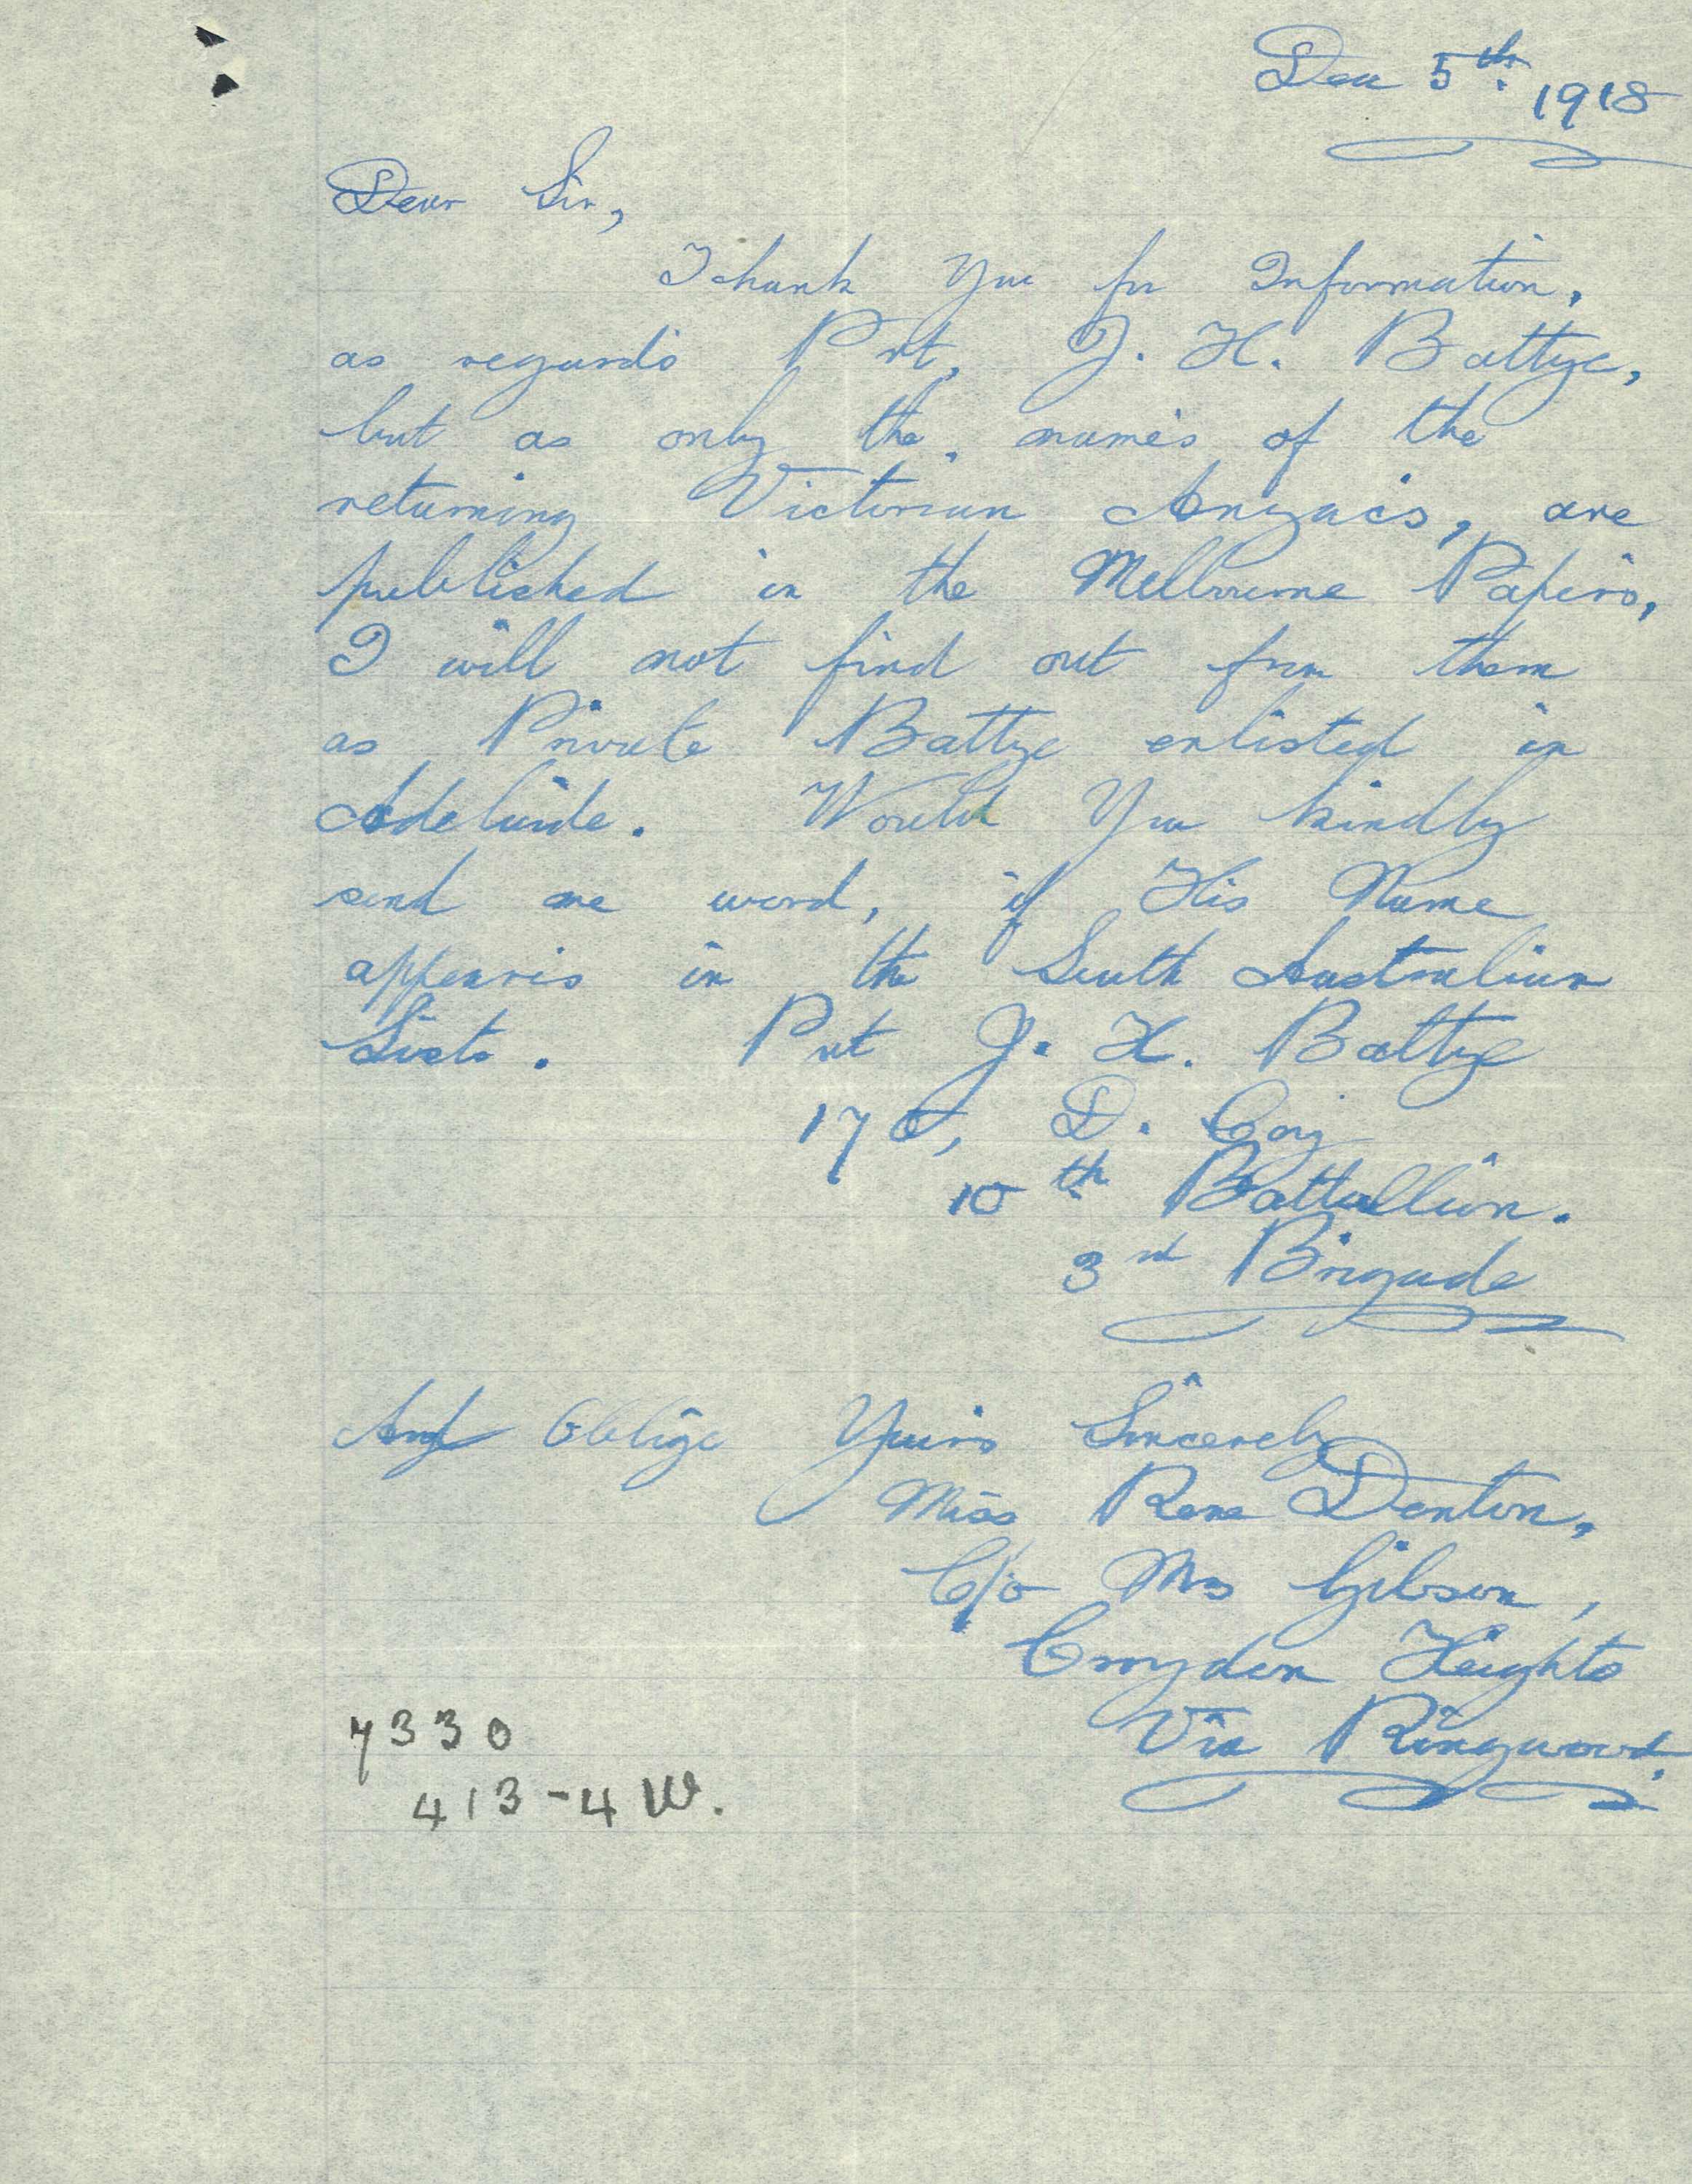 Dec 5th. 1918
Dear Sir,
Thank You for Information,
as regards Pvt, J. H. Battye,
but as only the, names of the
returning Victorian Anzacs, are
published in the Melbourne Papers,
I will not find out from them
as Private Battye enlisted in
Adelaide. Would You kindly
send me word, if His Name
appears in the South Australian
Lists. Pvt J. H. Battye
D. Coy
10th Battallion.
3rd Brigade
And Oblige Yours Sincerely
Miss Rene Denton,
C/o Mrs Gibson,
Croydon Heights
Via Ringwood.
7330
413-4 W.